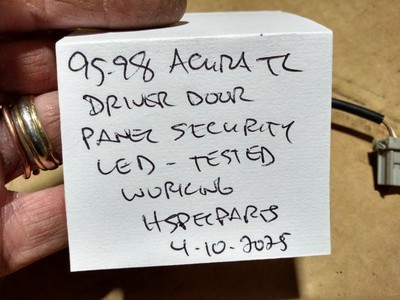 95-98 ACURA TL
DRIVER DOOR
PANEL SECURITY
LED - TESTED
WORKING
HSPECPARTS
4-10-2025